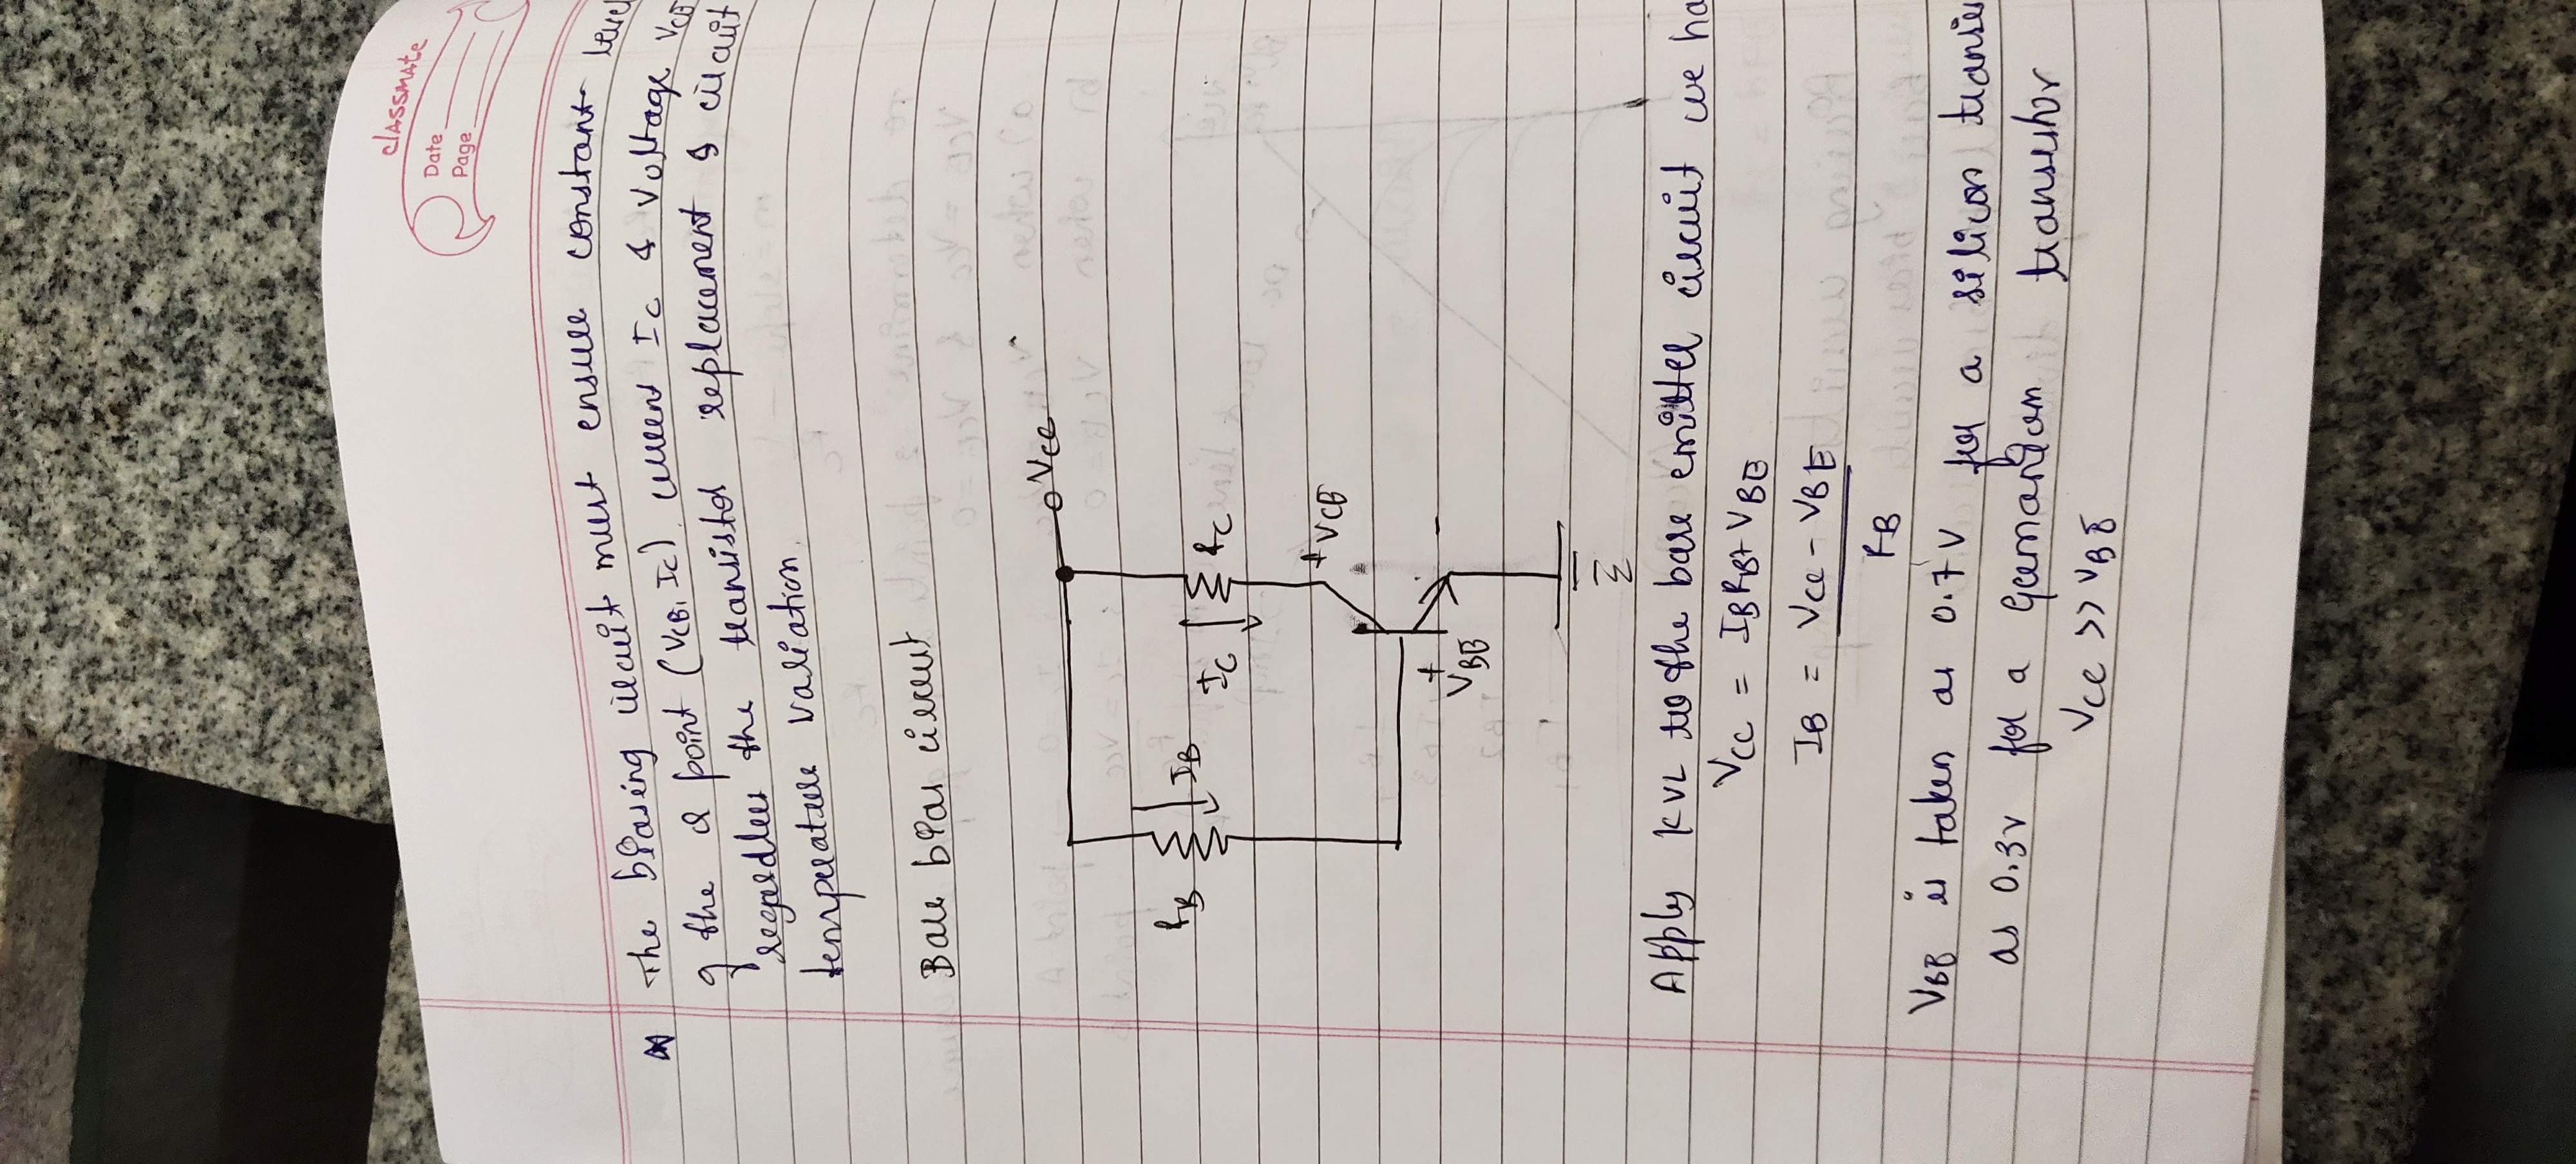 classmate
Date
Page
The biasing circuit must ensure constant level
of the Q point (VCE, IC) current IC & Voltage VCE
regardless the transistor replacement & circuit
temperature variation.
Base bias circuit
VCC
RB IB IC RC
+ VCE
+ -
VBE
Apply KVL to the base emitter circuit we ha
VCC = IBRB+VBE
IB = VCC - VBE
RB
VBE is taken as 0.7V for a silicon transis
as 0.3V for a Germaniam transistor
VCC >> VBE